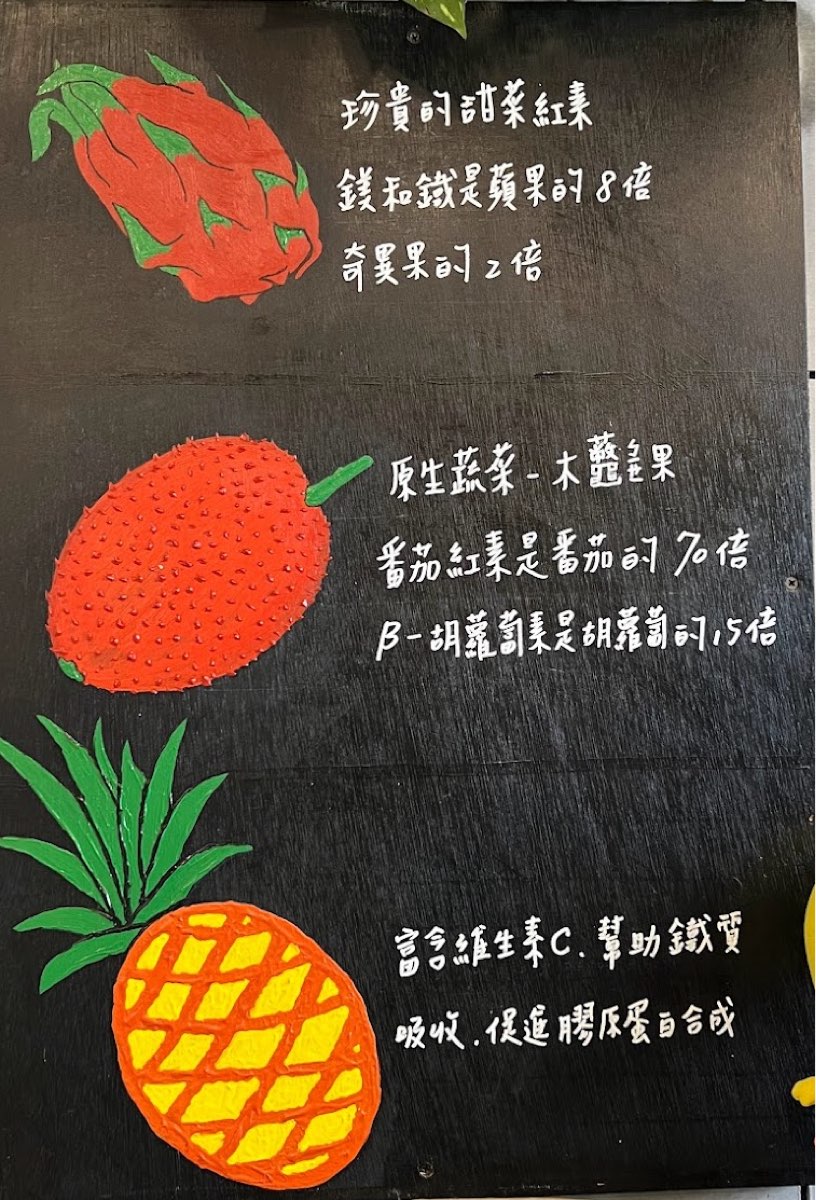 珍貴的甜菜紅素
鎂和鐵是蘋果的8倍
奇異果的2倍
原生蔬菜-木虌果
番茄紅素是番茄的70倍
β-胡蘿蔔素是胡蘿蔔的15倍
富含維生素C.幫助鐵質
吸收.促進膠原蛋白合成